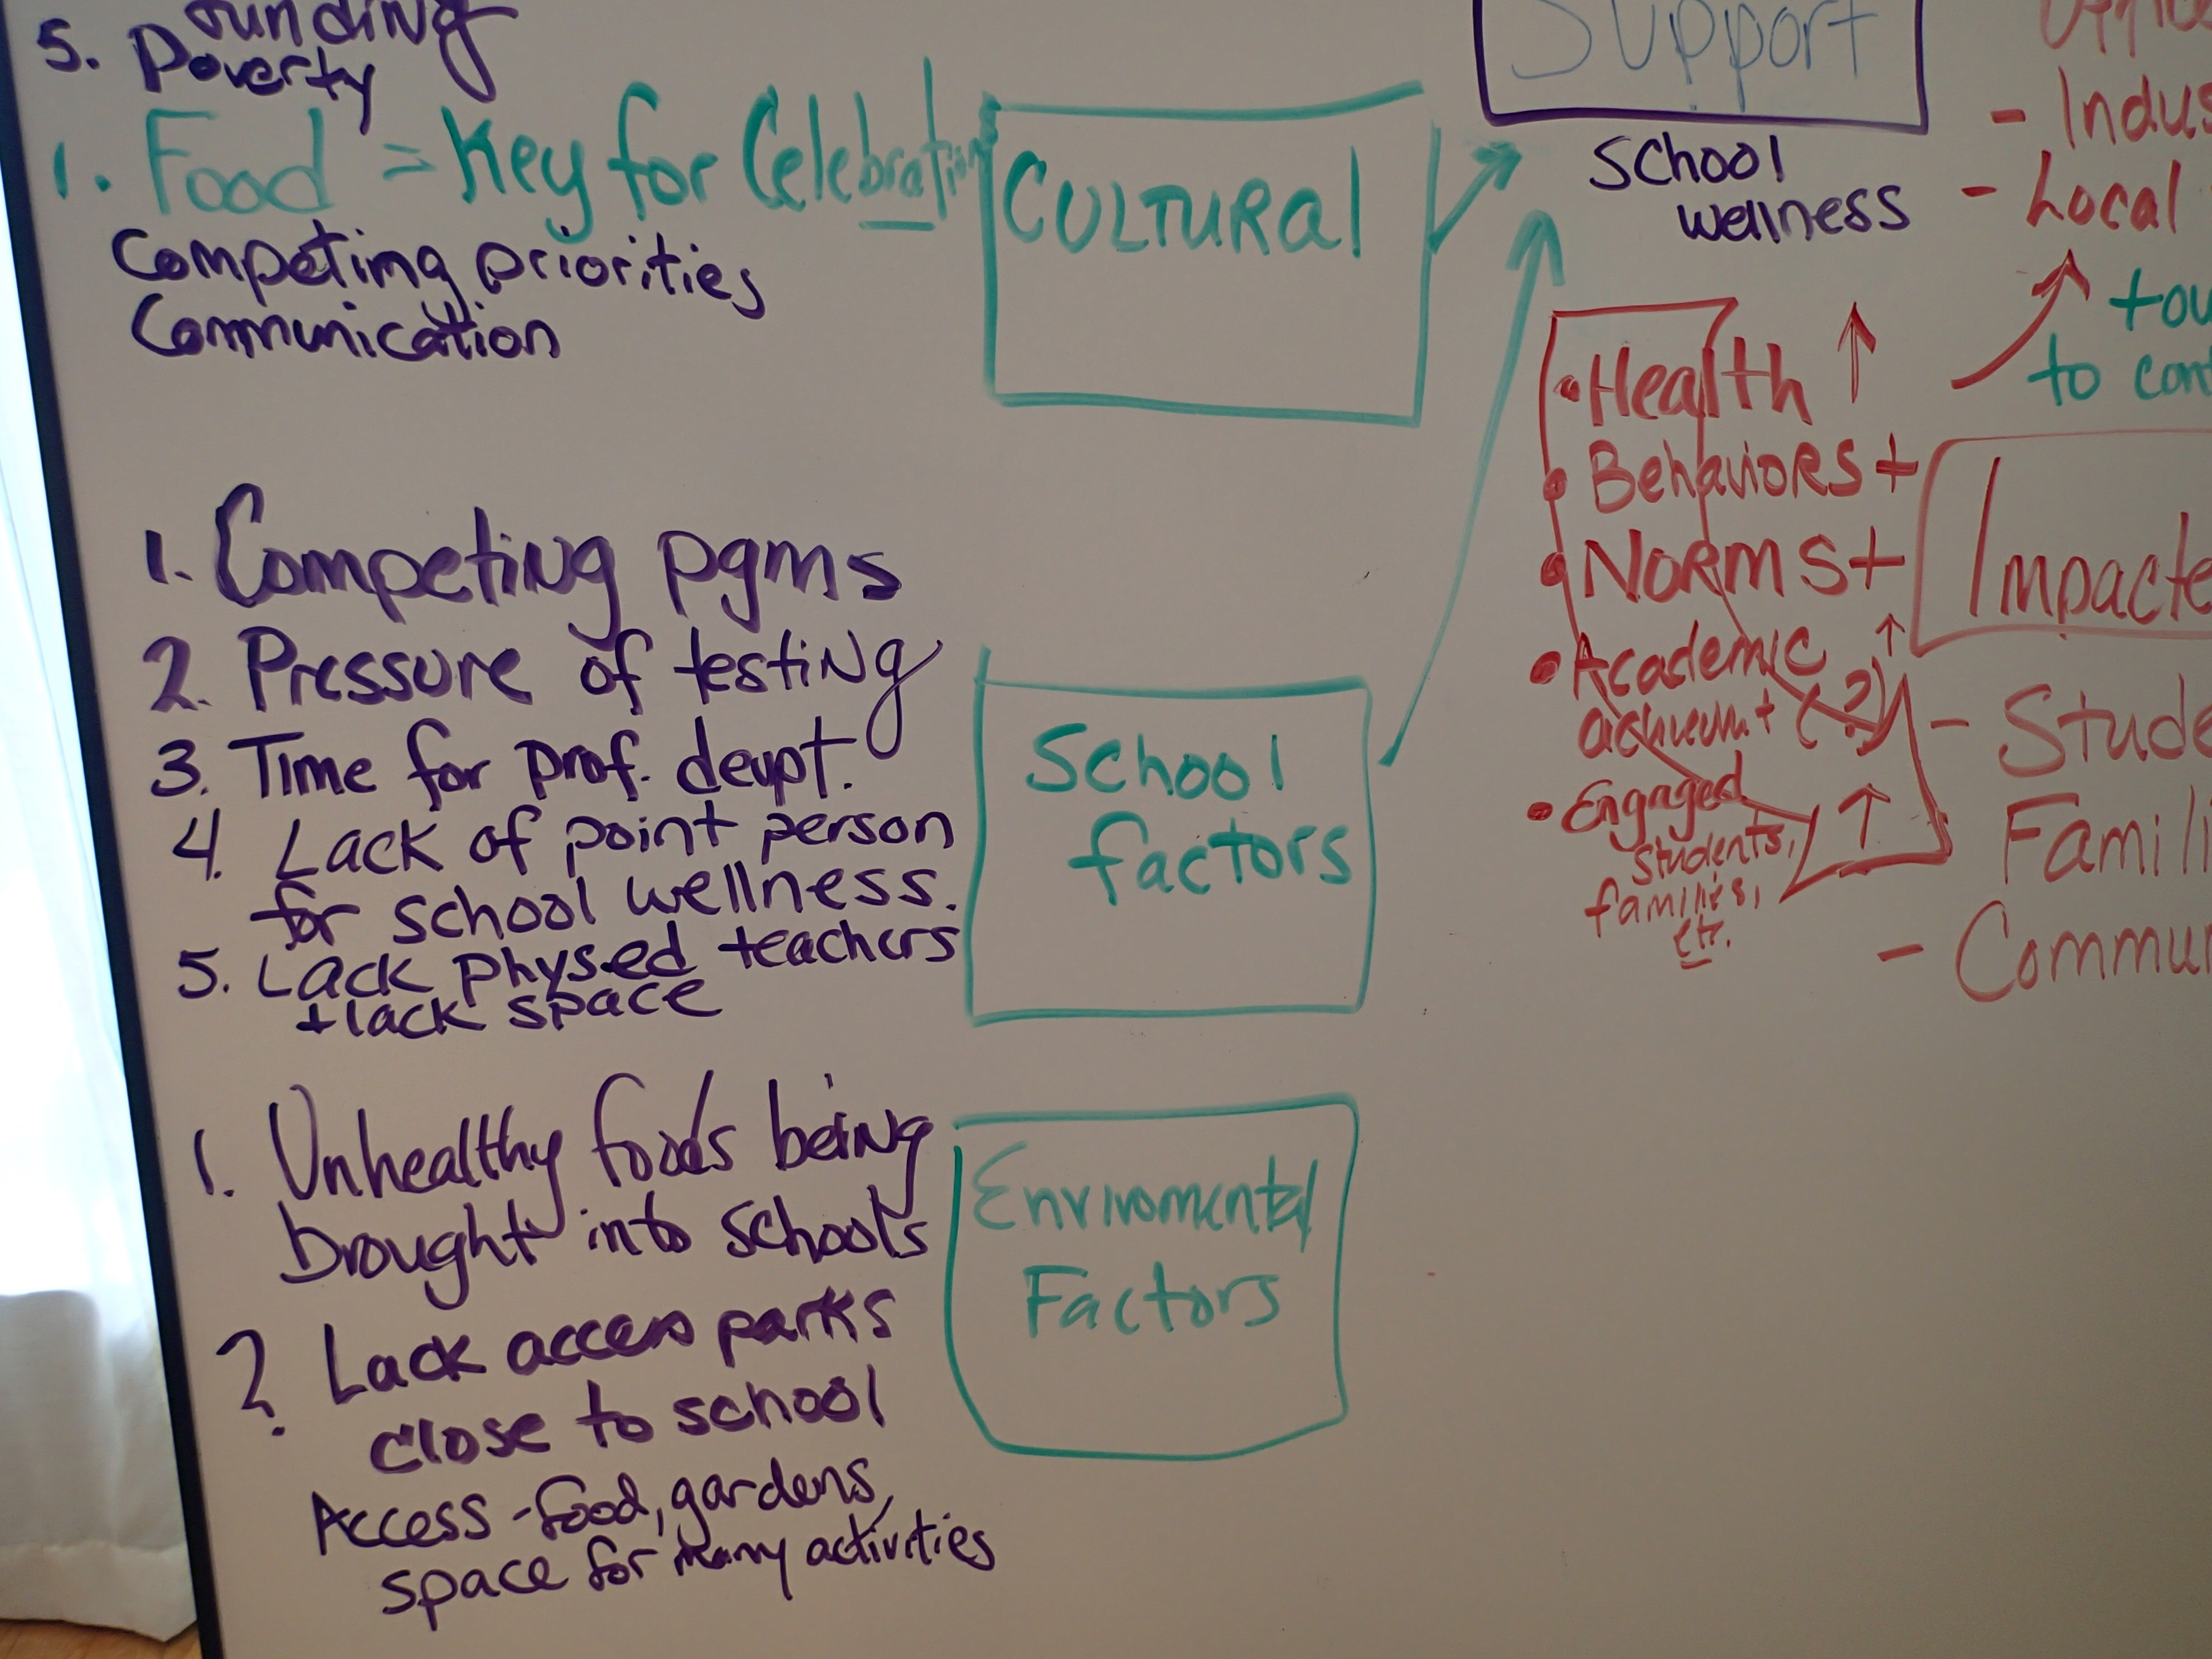 5. Poverty
1. Food = Key for Celebration
Competing priorities
Communication
CULTURAl
1. Competing pgms
2. Pressure of testing
3. Time for prof. devpt.
4. Lack of point person
for school wellness.
5. Lack phys.ed teachers
+ lack space
School
factors
1. Unhealthy foods being
brought into schools
2. Lack access parks
close to school
Access - food, gardens,
space for many activities
Enviromental
Factors
Support
School
wellness
• Health ↑
• Behaviors +
• Norms +
• Academic ↑
achievemt (?)
• Engaged ↑
students,
families,
etc.
- Local
to